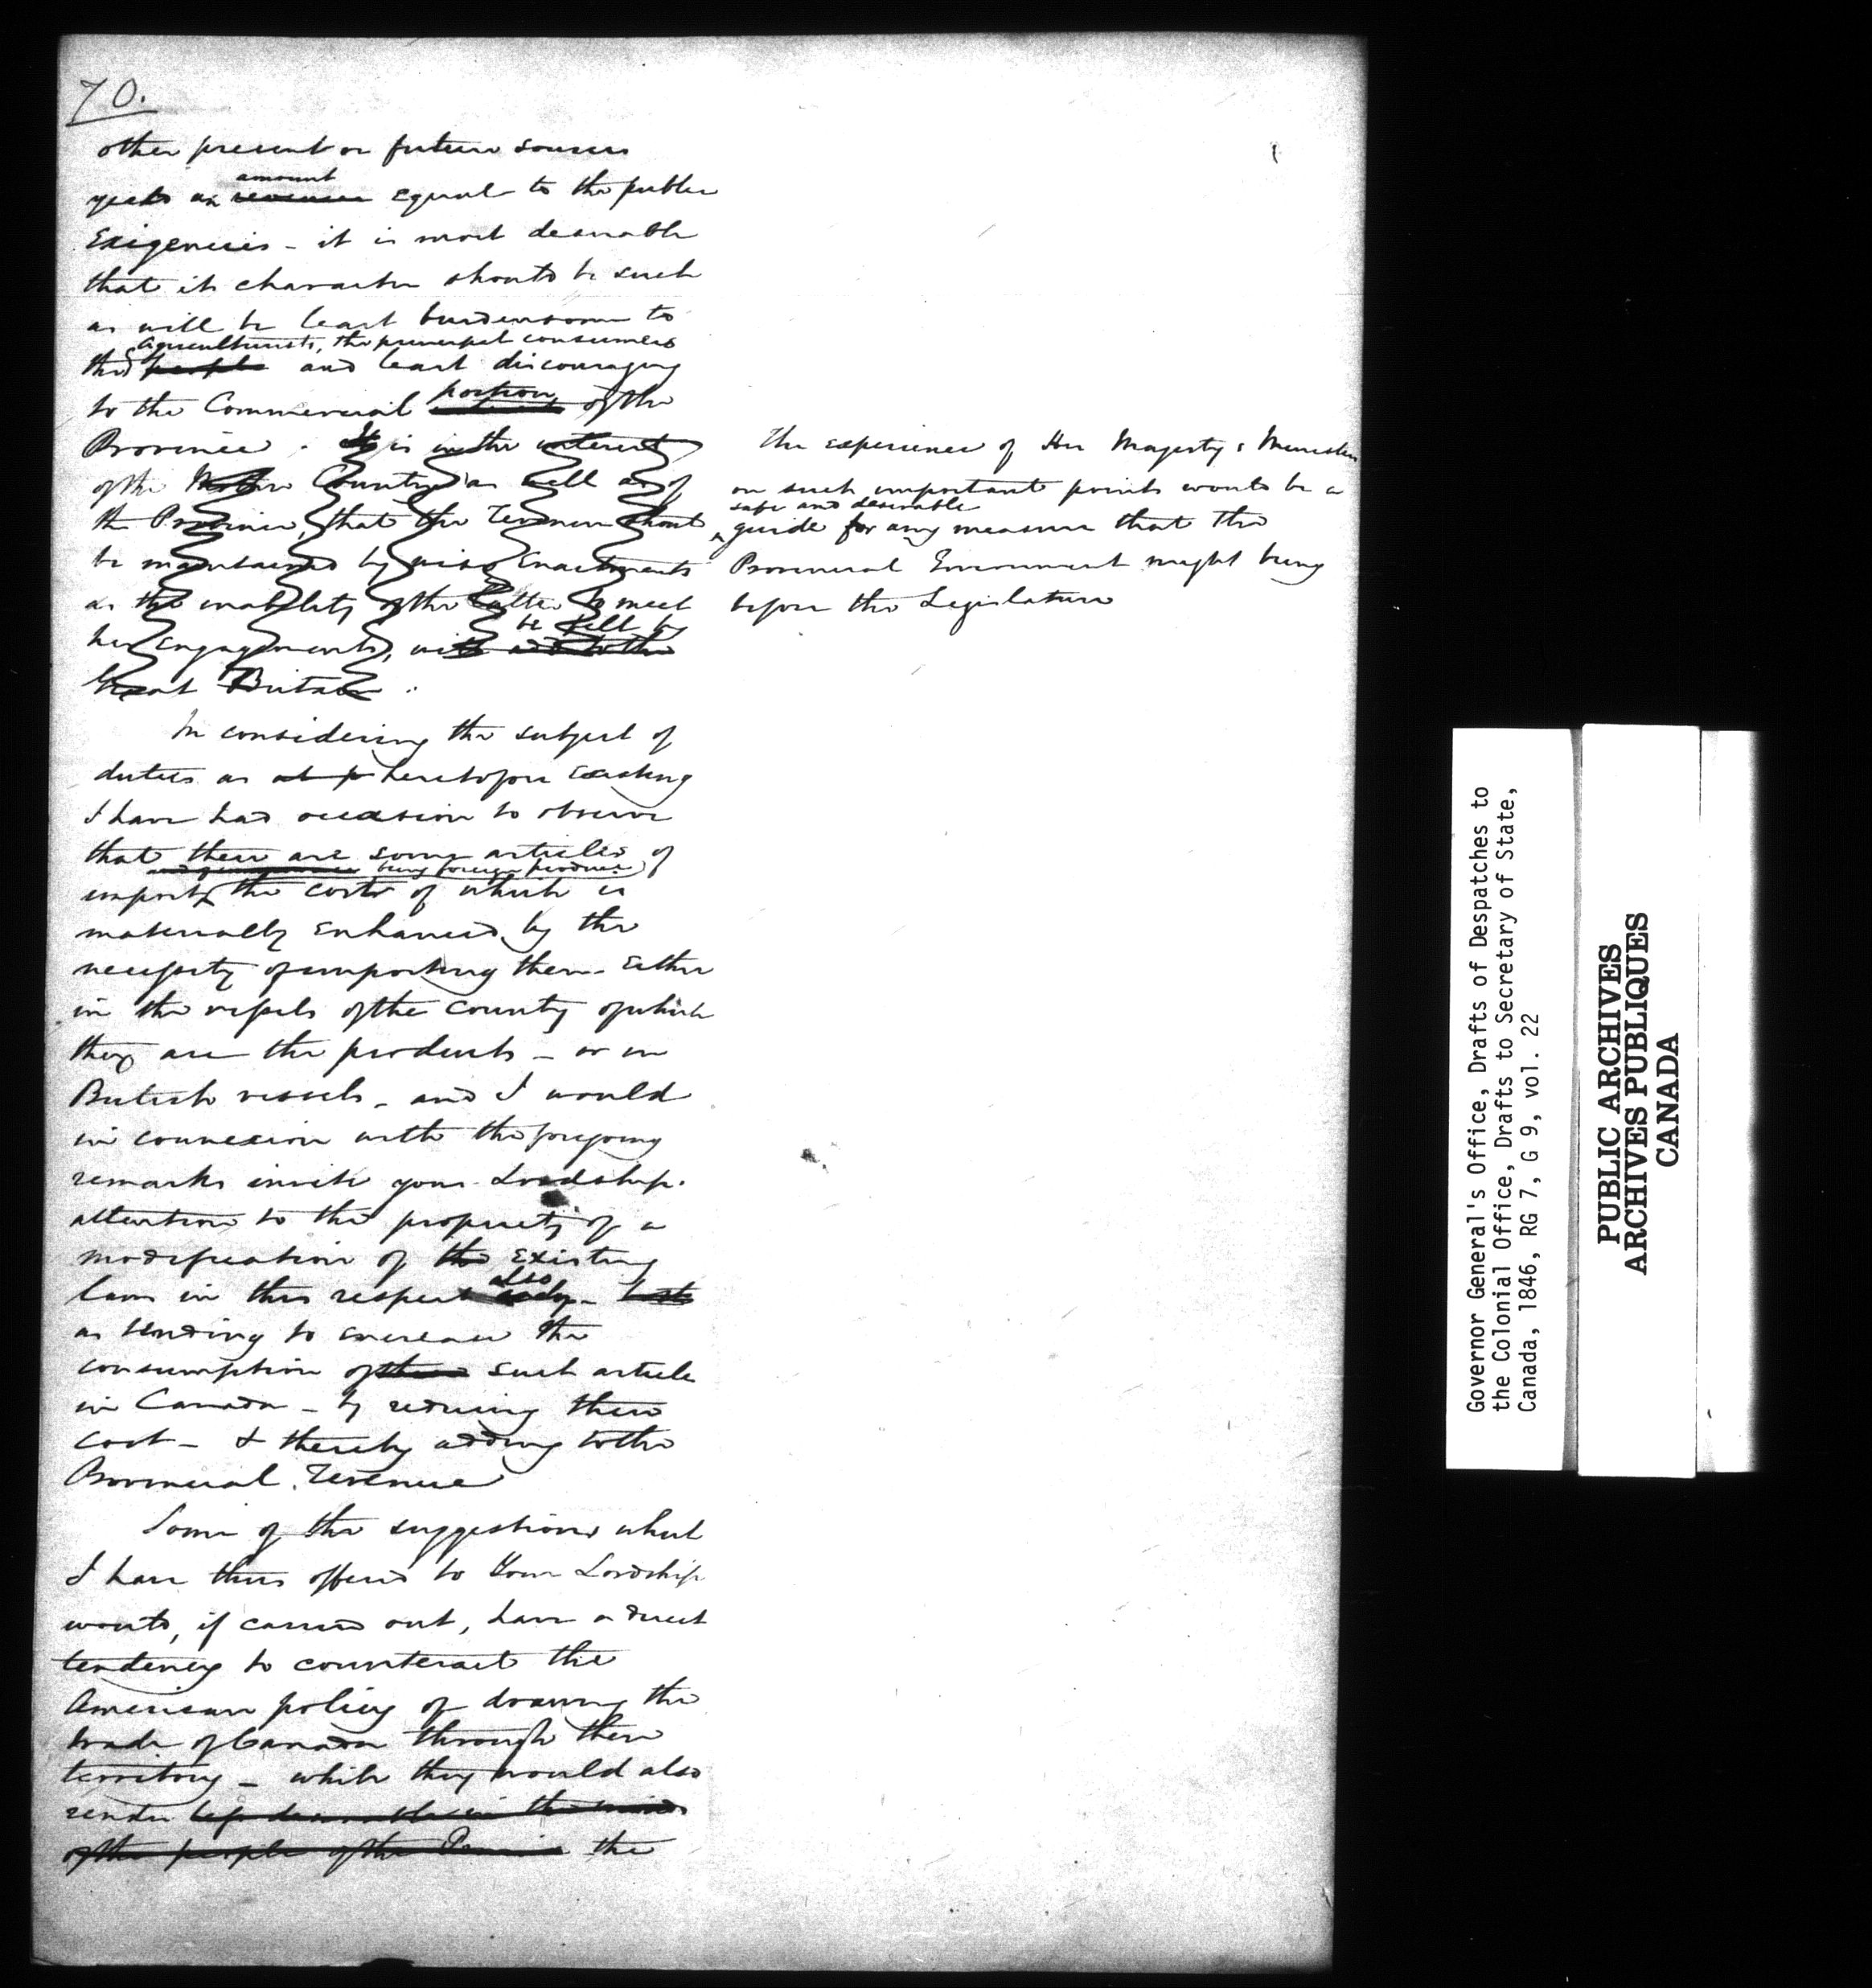 70.
other present or future sources
yield an revenue amount equal to the public
Exigencies - it is most desirable
that its character should be such
as will be least burdensome to
the people agriculturists, the principal consumers and least discouraging
to the Commercial portion of the
Province. It is in the interest
of the Mother Country as well as of
the Province, that the Revenue should
be maintained by wise Enactments
as the inability of the latter to meet
her engagements, will add to the be felt by
Great Britain.
The experience of Her Majesty's Ministers
on such important points would be a
safe and desirable
guide for any measure that the
Provincial Government might bring
before the Legislature
In considering the subject of
duties as heretofore Existing
I have had occasion to observe
that there are some articles of
being foreign produce
import the cost of which is
materially enhanced by the
necessity of importing them - Either
in the vessels of the Country of which
they are the products - or in
British vessels - and I would
in connexion with the foregoing
remarks invite your Lordship's
attention to the propriety of a
modification of the existing
laws in this respect only also - but
as tending to increase the
consumption of these such article
in Canada - by reducing their
cost - & thereby adding to the
Provincial Revenue
Some of the suggestions which
I have thus offered to Your Lordship
would, if carried out, have a direct
tendency to counteract the
American policy of drawing the
trade of Canada through their
territory - while they would also
render less desirable in the minds
of the people of the Province the
Governor General's Office, Drafts of Despatches to
the Colonial Office, Drafts to Secretary of State,
Canada, 1846, RG 7, G 9, vol. 22
PUBLIC ARCHIVES
ARCHIVES PUBLIQUES
CANADA